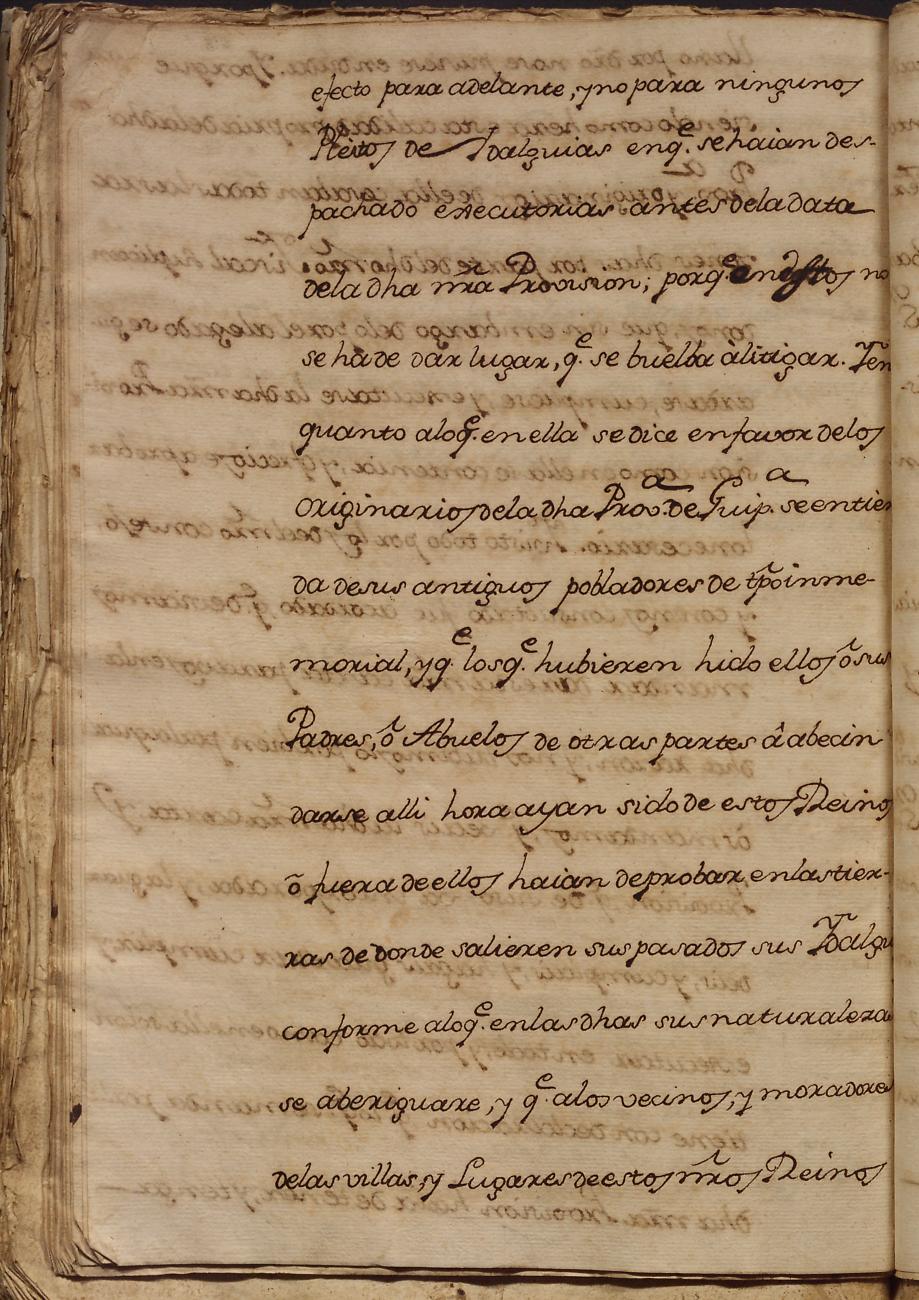 efecto para adelante, y no para ningunos
Pleitos de Idalguias en q.e se haian des-
pachado executorias antes dela data
dela dha nr̃a Provision; porq.e en estos no
se há de dar lugar, q.e se buelba à litigar. Y en
quanto alo q.e en ella se dice en favor delos
originarios dela dha Prov.a de Guip.a se entien
da desus antiguos pobladores de tp̃o inme-
morial, y q.e los q.e hubieren hido ellos ô sus
Padres, ô Abuelos de otras partes â abecin-
darse alli hora ayan sido de estos Reinos
ô fuera de ellos haian de probar en las tier-
ras de donde salieren sus pasados sus Idalgu
conforme alo q.e en las dhas sus naturalezas
se aberiguare, y q.e alos vecinos, y moradores
delas villas, y Lugares de estos nr̃os Reinos